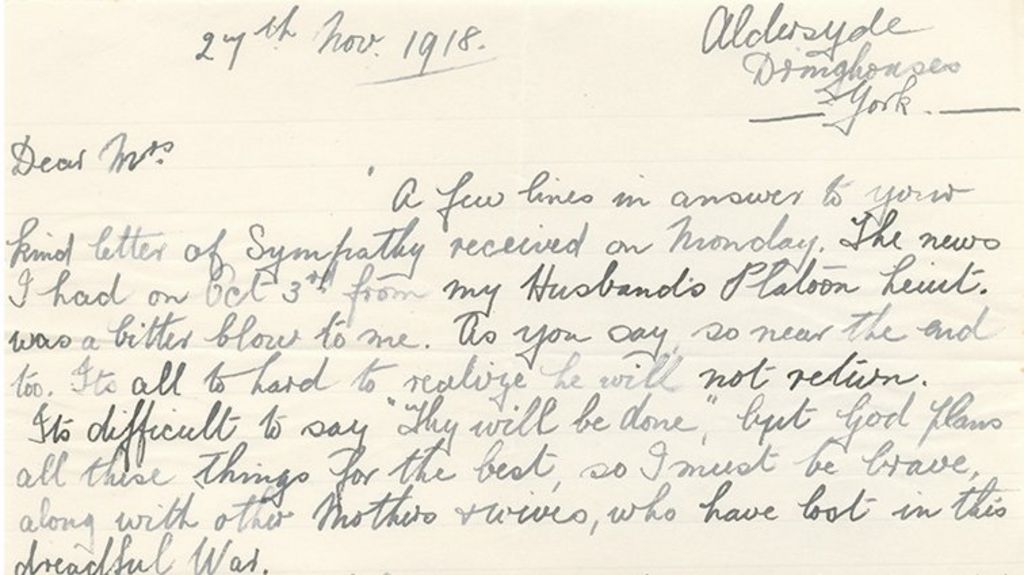 27th Nov. 1918.
Aldersyde
Dringhouses
York.
Dear Mrs
A few lines in answer to your
kind letter of Sympathy received on Monday. The news
I had on Oct 3rd from my Husband's Platoon Leiut.
was a bitter blow to me. As you say, so near the end
too. Its all to hard to realize he will not return.
Its difficult to say "Thy will be done", but God plans
all these things for the best, so I must be brave,
along with other Mothers & wives, who have lost in this
dreadful War.